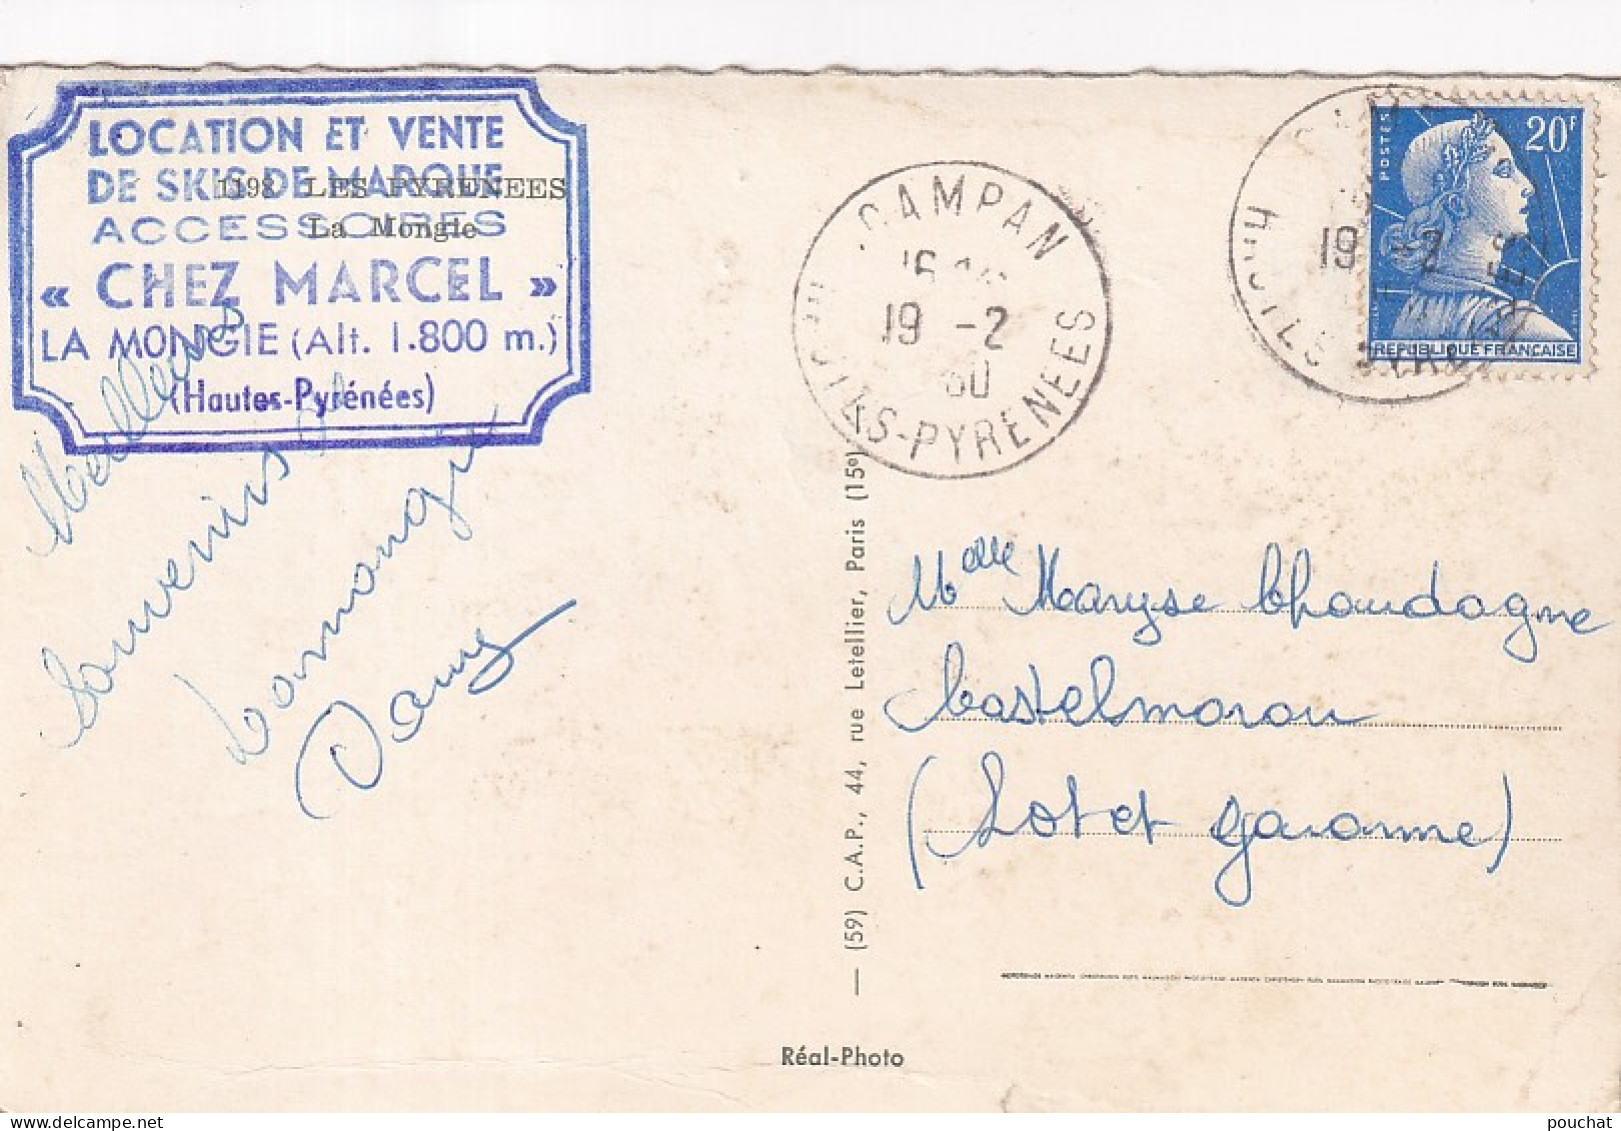 LOCATION ET VENTE
DE SKIS DE MARQUE
ACCESSOIRES
« CHEZ MARCEL »
LA MONGIE (Alt. 1.800 m.)
(Hautes-Pyrénées)
1198 LES PYRENEES
La Mongie
Meilleurs
Souvenirs de
La mongie
Dany
CAMPAN
19 -2
60
PYRENEES
19 -2
POSTES
20F
REPUBLIQUE FRANÇAISE
Melle Maryse Chaudagne
Castelmoron
(Lot et garonne)
(59) C.A.P., 44, rue Letellier, Paris (15e)
Réal-Photo
pouchat
delcampe.net